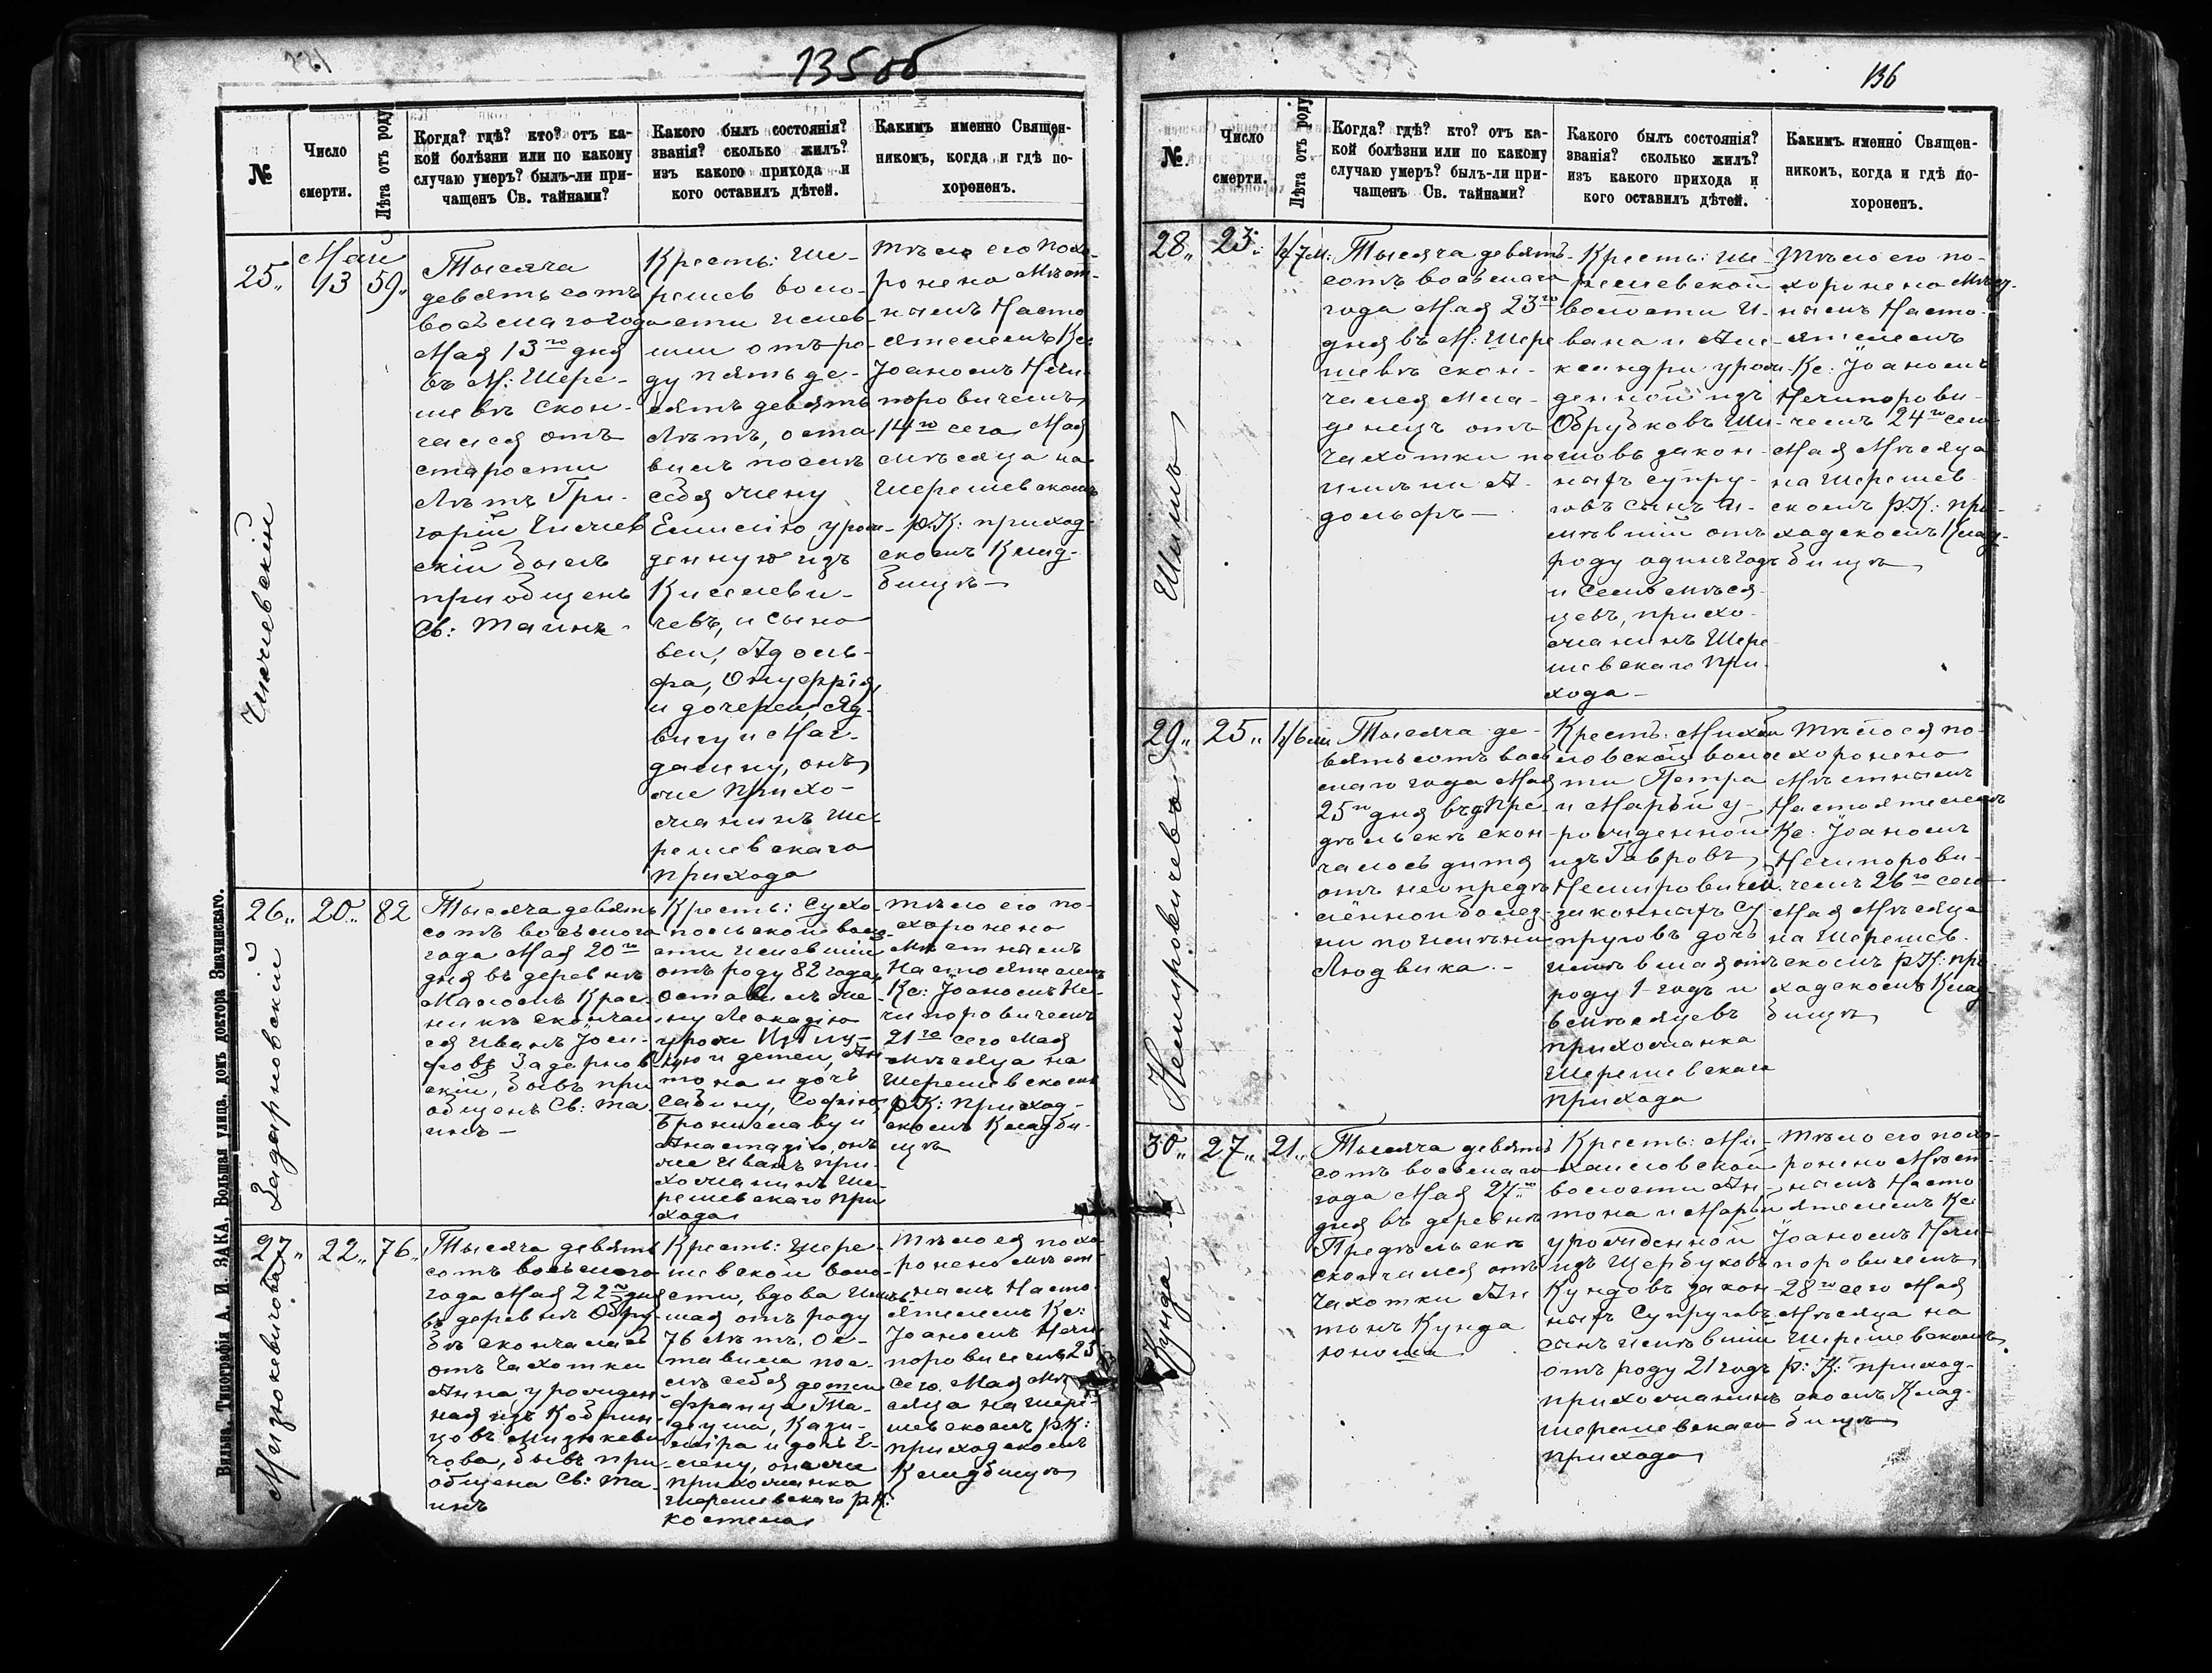 135об
№
Число
смерти.
Лѣта отъ роду
Когда? гдѣ? кто? отъ ка-
кой болѣзни или по какому
случаю умеръ? былъ-ли при-
чащенъ Св. тайнами?
Какого былъ состоянія?
званія? сколько жилъ?
изъ какого прихода и
кого оставилъ дѣтей.
Какимъ именно Священ-
никомъ, когда и гдѣ по-
хороненъ.
25
Мая
13
59
Тысяча
девятьсотъ
восьмаго года
Мая 13го дня
въ М: Шере-
шевѣ скон-
чался отъ
старости
лѣтъ Гри-
горій
скій былъ
пріобщенъ
Св: Таинъ
Крестъ: Ше-
решев воло-
сти имев
шій отъ ро-
ду пятьде-
сятъ девять
лѣтъ, оста
вилъ послѣ
себя жену
Емилію урож
денную изъ
Киселеви-
чевъ, и сыно
вей, Адоль-
фа, Онуфрія,
и дочерей, Яд-
вигу и Маг-
далину, онъ
же прихо-
жанинъ Ше
решевскаго
прихода
Тѣло его похо
ронено Мѣст-
нымъ Насто
ятелемъ Кс:
Іоаномъ Нечи-
поровичемъ
14го сего Мая
мѣсяца на
Шерешевскомъ
р.К: приход-
скомъ Клад-
бищѣ
26
20
82
Задарновскій
Тысяча девять
сотъ восьмого
года Мая 20го
дня въ деревнѣ
Маломъ Крас-
никѣ скончал
ся Иванъ Іоси-
фовъ Задернов-
скій, бывъ прі
общенъ Св: Та-
инъ
Крестъ: Сухо-
польской воло
сти имевшій
отъ роду 82 года,
оставилъ же-
ну Леокадію
урож
и детей, Ан
тона и дочь
Сабину, Софію
Брониславу и
Анастазію, онъ
же Иванъ при-
хожанинъ Ше-
решевскаго при
хода
Тѣло его по-
хоронено
Мѣстнымъ
Настоятелемъ
Кс: Іоаномъ Не-
чипоровичемъ
21го сего Мая
мѣсяца на
Шерешевскомъ
р.К: приход-
скомъ Кладби-
щѣ
27
22
76
Тысяча девять
сотъ восьмого
года Мая 22го дня
въ деревнѣ Обру-
бѣ скончалась
отъ Чахотки
Анна урожден-
ная изъ Кобрин-
цовъ Мизюкеви
чова, бывъ прі-
общена Св: Та-
инъ
Крестъ: Шере-
шевской воло-
сти, вдова имѣв-
шая отъ роду
76 лѣтъ. Ос-
тавила пос-
лѣ себя детей
Франца Та-
деуша, Кази-
міра и дочь Е-
лену, она же
прихожанка
Шерешевскаго р.К:
костела
Тѣло ея похо-
ронено мѣст
нымъ Насто-
ятелемъ Кс:
Іоаномъ Нечи
поровичемъ 23
сего Мая мѣ-
сяца на Шере-
шевскомъ р.К:
приходскомъ
Кладбищѣ
Вильна. Типографія А. И. ЗАКА, Большая улица, домъ доктора Змачинскаго.
136
№
Число
смерти.
Лѣта отъ роду
Когда? гдѣ? кто? отъ ка-
кой болѣзни или по какому
случаю умеръ? былъ-ли при-
чащенъ Св. тайнами?
Какого былъ состоянія?
званія? сколько жилъ?
изъ какого прихода и
кого оставилъ дѣтей.
Какимъ именно Священ-
никомъ, когда и гдѣ по-
хороненъ.
28
23
1г/7м:
Тысяча девять-
сотъ восьмаго
года Мая 23го
дня въ М: Шере
шевѣ скон-
чался мла-
денецъ отъ
чахотки по
имѣни А-
дольфъ
Крестъ: Ше-
решевской
волости И-
вана и Але-
ксандри урож
денной изъ
Обрубковъ Ши-
шовъ закон-
ныхъ супру-
говъ сынъ и-
мѣвшій отъ
роду одинъ годъ
и семь мѣся-
цевъ, прихо-
жанинъ Шере-
шевскаго При-
хода
Тѣло его по-
хоронено Мѣст-
нымъ Насто-
ятелемъ
Кс: Іоаномъ
Нечипорови-
чемъ 24го сего
Мая Мѣсяца
на Шерешев-
скомъ р.К: при-
ходскомъ Клад-
бищѣ
29
25
1г/6м
Немировичева
Тысяча де-
вятьсотъ вось
маго года Мая
25го дня въ Пре-
дѣльскѣ скон
чалось дитя
отъ неопредѣ
лённой болез-
ни по имѣни
Людвика.
Крестъ: Михай
ловской волос
ти Петра
и Маріи у-
рожденной
изъ Гавровъ
Немировичей
законныхъ су
пруговъ дочь
имѣвшая отъ
роду 1 годъ и
6 мѣсяцевъ
прихожанка
Шерешевскаго
прихода
Тѣло ея по-
хоронено
Мѣстнымъ
Настоятелемъ
Кс: Іоаномъ
Нечипорови-
чемъ 26го сего
Мая Мѣсяца
на Шерешев-
скомъ р.К: при
ходскомъ Клад-
бищѣ
30
27
21
Кунда
Тысяча девять
сотъ восьмаго
года Мая 27го
дня въ деревнѣ
Предѣльскѣ
скончался отъ
Чахотки Ан
тонъ Кунда
юноша
Крестъ: Ми-
хайловской
волости Ан-
тона и Маріи
урожденной
изъ Щербуковъ
Кундовъ закон-
ныхъ Супруговъ
сынъ имѣвшій
отъ роду 21 годъ
прихожанинъ
Шерешевскаго
прихода
Тѣло его похо-
ронено Мѣст-
нымъ Насто
ятелемъ Кс:
Іоаномъ Нечи-
поровичемъ
28го сего Мая
Мѣсяца на
Шерешевскомъ
р: К: приход-
скомъ Клад-
бищѣ